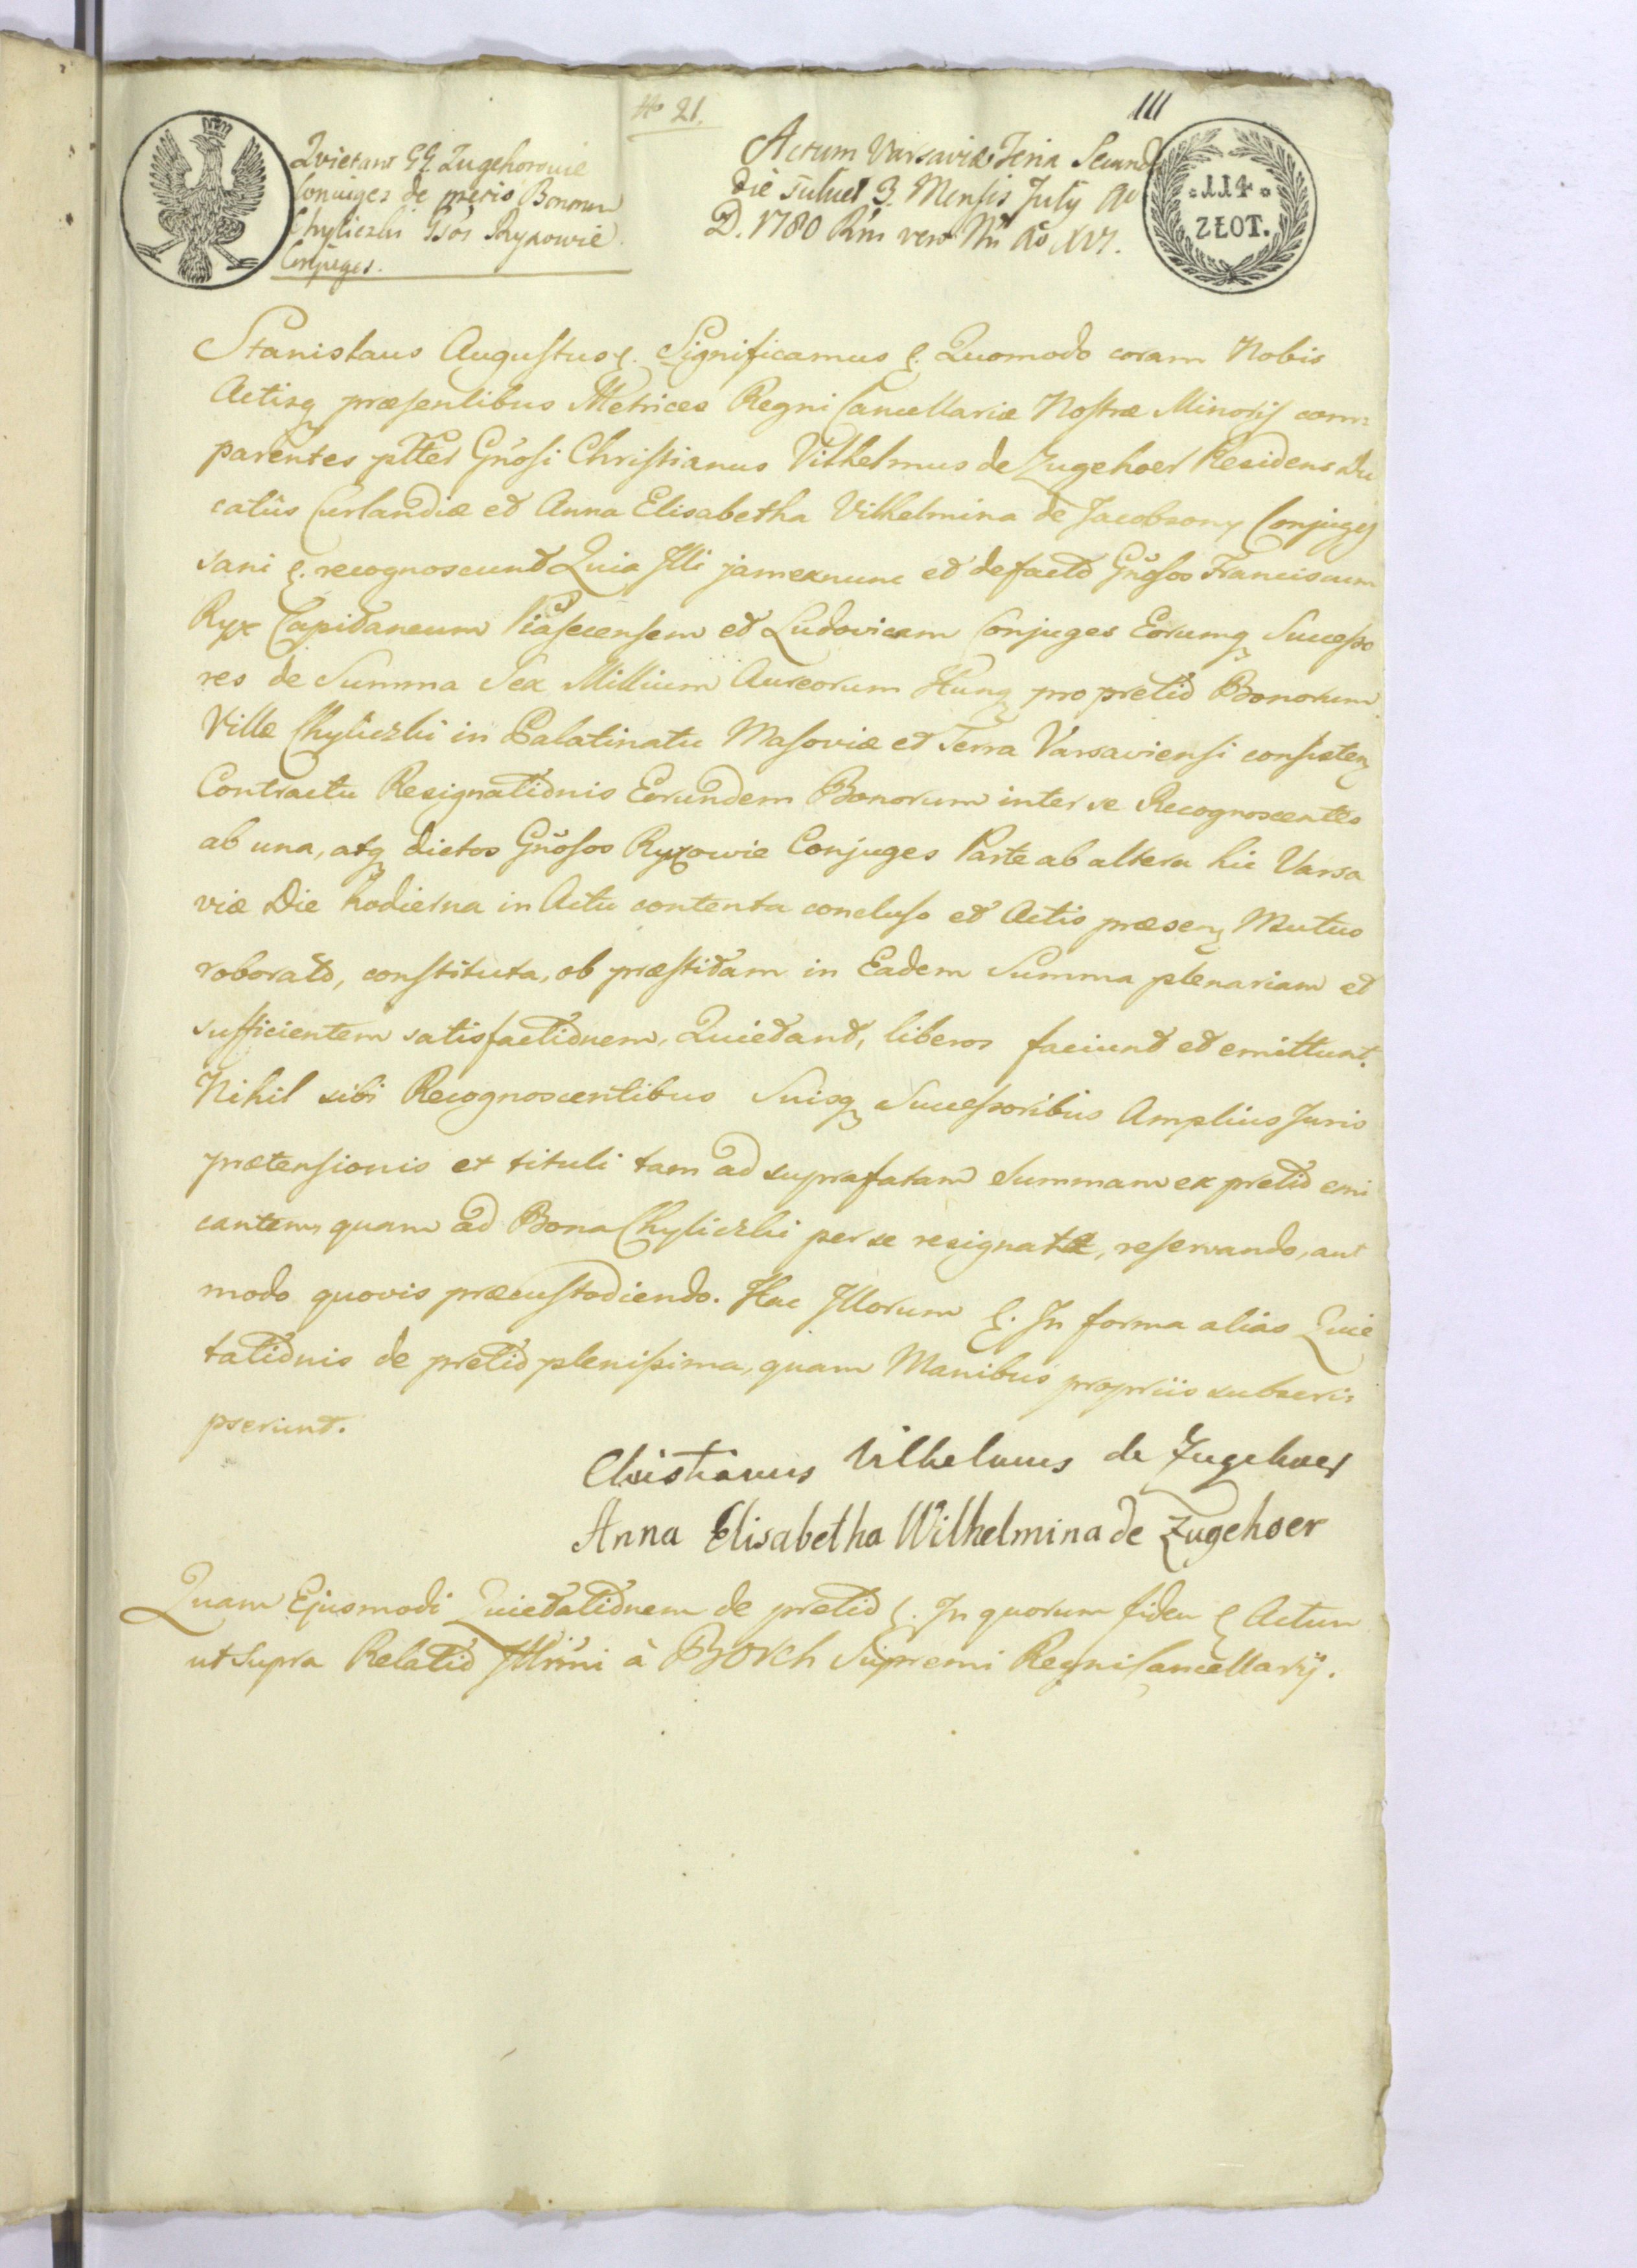 No 21.
111
Quietant GG. Zugehorowie
Conjuges de pretio Bonorum
Chyliczki Gsos Ryxowie
Conjuges.
Actum Varsaviæ Feria Secunda
die scilicet 3. Mensis July Ao
D. 1780 Rni vero Nri Ao XVI.
.114.
ZŁOT.
Stanislaus Augustus &. Significamus &. Quomodo coram Nobis
Actisq præsentibus Metrices Regni Cancellariæ Nostræ Minoris com=
parentes pltter Gnosi Christianus Vilhelmus de Zugehoer Residens Du
catûs Curlandiæ et Anna Elisabetha Vilhelmina de Jacobsony Conjuges
sani &. recognoscunt Quia Illi jamexnunc et defacto Gnosos Franciscum
Ryx Capitaneum Piasecensem et Ludovicam Conjuges Eorumq Successo
res de Summa Sex Millium Aureorum Hung pro pretio Bonorum
Villæ Chyliczki in Palatinatu Masoviæ et Terra Varsaviensi consisten
Contractu Resignationis Eorundem Bonorum inter se Recognoscentes
ab una, atq dictos Gnosos Ryxowie Conjuges Parte ab altera hic Varsa
viæ Die hodierna in Actu contenta concluso et Actis præsen Mutuo
roborato, constituta, ob præstitam in Eadem Summa plenariam et
sufficientem satisfactionem, Quietant, liberos faciunt et emittunt.
Nihil sibi Recognoscentibus Suisq Successoribus Amplius Juris
prætensionis et tituli tam ad suprafatam Summam ex pretio emi
cantem, quam ad Bona Chyliczki per se resignata, reservando, aut
modo quovis præcustodiendo. Hac Illorum &. In forma alias Quie
tationis de pretio plenissima, quam Manibus propriis subscri=
pserunt.
Christianus Vilhelmus de Zugehoer
Anna Elisabetha Wilhelmina de Zugehoer
Quam Ejusmodi Quietationem de pretio &. In quorum fidem & Actum
ut supra Relatio Illrmi à Borch Supremi Regni Cancellarij.